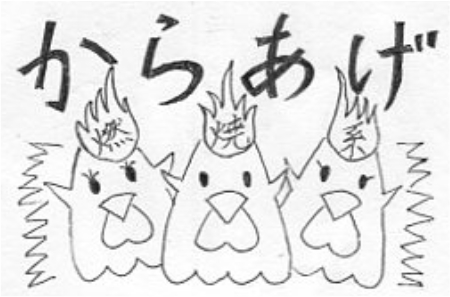 からあげ
燃 焼 系